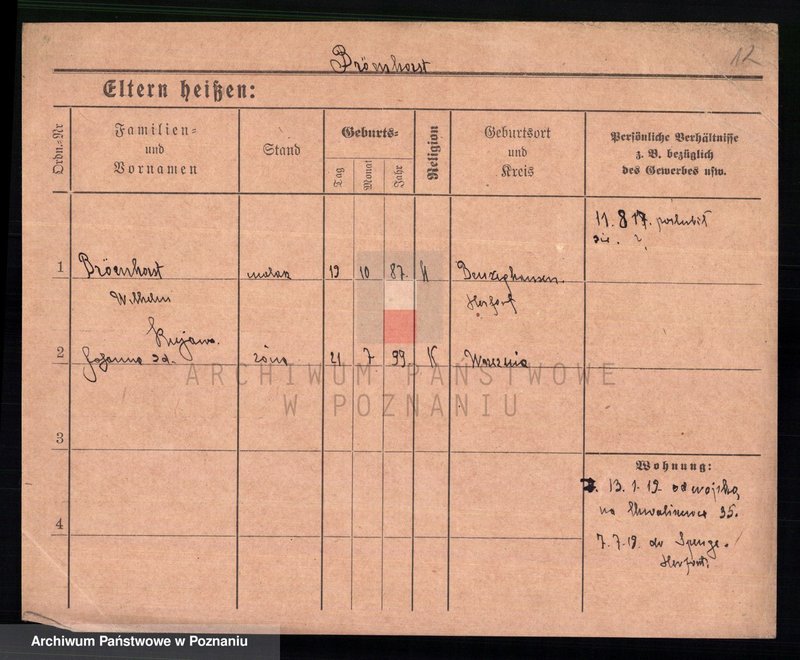 Bröenhorst
12
Eltern heißen:
Ordn.-Nr
Familien-
und
Vornamen
Stand
Geburts-
Tag
Monat
Jahr
Religion
Geburtsort
und
Kreis
Persönliche Verhältnisse
z. B. bezüglich
des Gewerbes usw.
11. 8 17. poślubił
się.
1
Bröenhorst
Wilhelm
malarz
19
10
87.
Herford
2
Zuzanna zd.
żona
21
7
99
K
Września
ARCHIWUM PAŃSTWOWE
W POZNANIU
3
4
Wohnung:
13. 1. 19. od wojska
na Chwaliszewo 35.
7. 7. 19. do Spenge.
Herford.
Archiwum Państwowe w Poznaniu